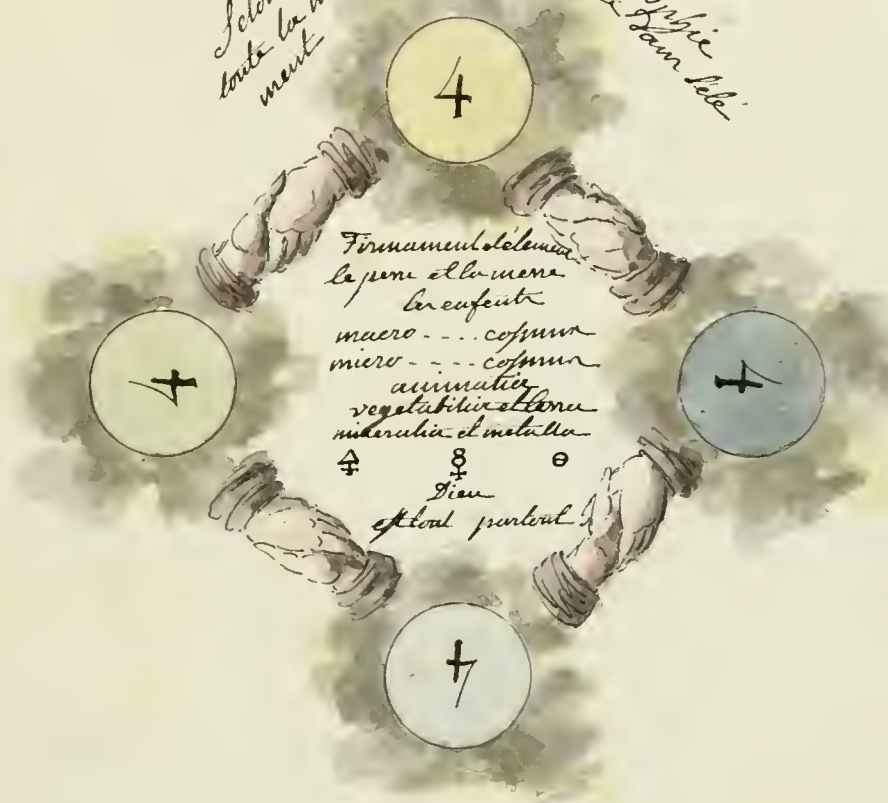 Selon
toute la
ment
sophie
Dans l'élé
4
Firmament d'element
le pere et la mere
les enfents
macro - - - - cosmus
micro - - - - cosmus
animalia
vegetabilia et terra
mineralia et metalla
🜍 ☿ 🜔
Dieu
est tout partout
4
4
4